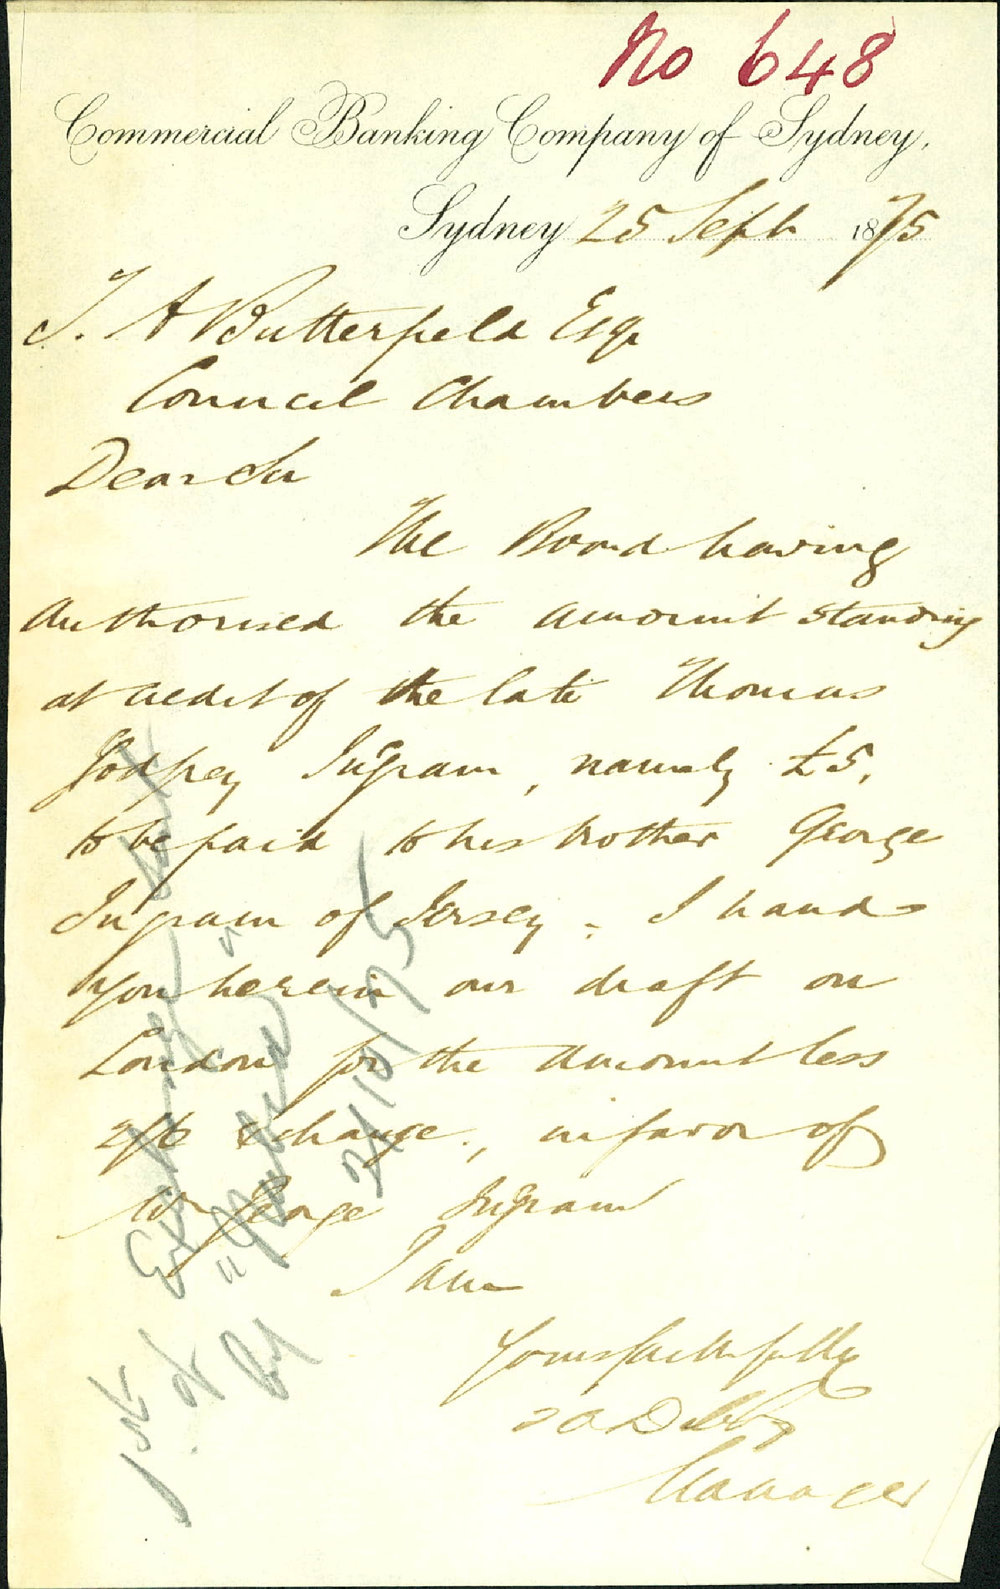 No 648
Commercial Banking Company of Sydney.
Sydney 25 Sept 1875
J. A Butterfield Esqr
Council Chambers
Dear Sir
The Board having
authorised the amount standing
at credit of the late Thomas
Godfrey Ingram, namely £5,
to be paid to his brother George
Ingram of Jersey - I hand
you herein our draft on
London for the amount less
2/6 exchange, in favor of
Mr George Ingram
I am
Yours faithfully
Manager
1st of Exchange sent
by
2/10/75